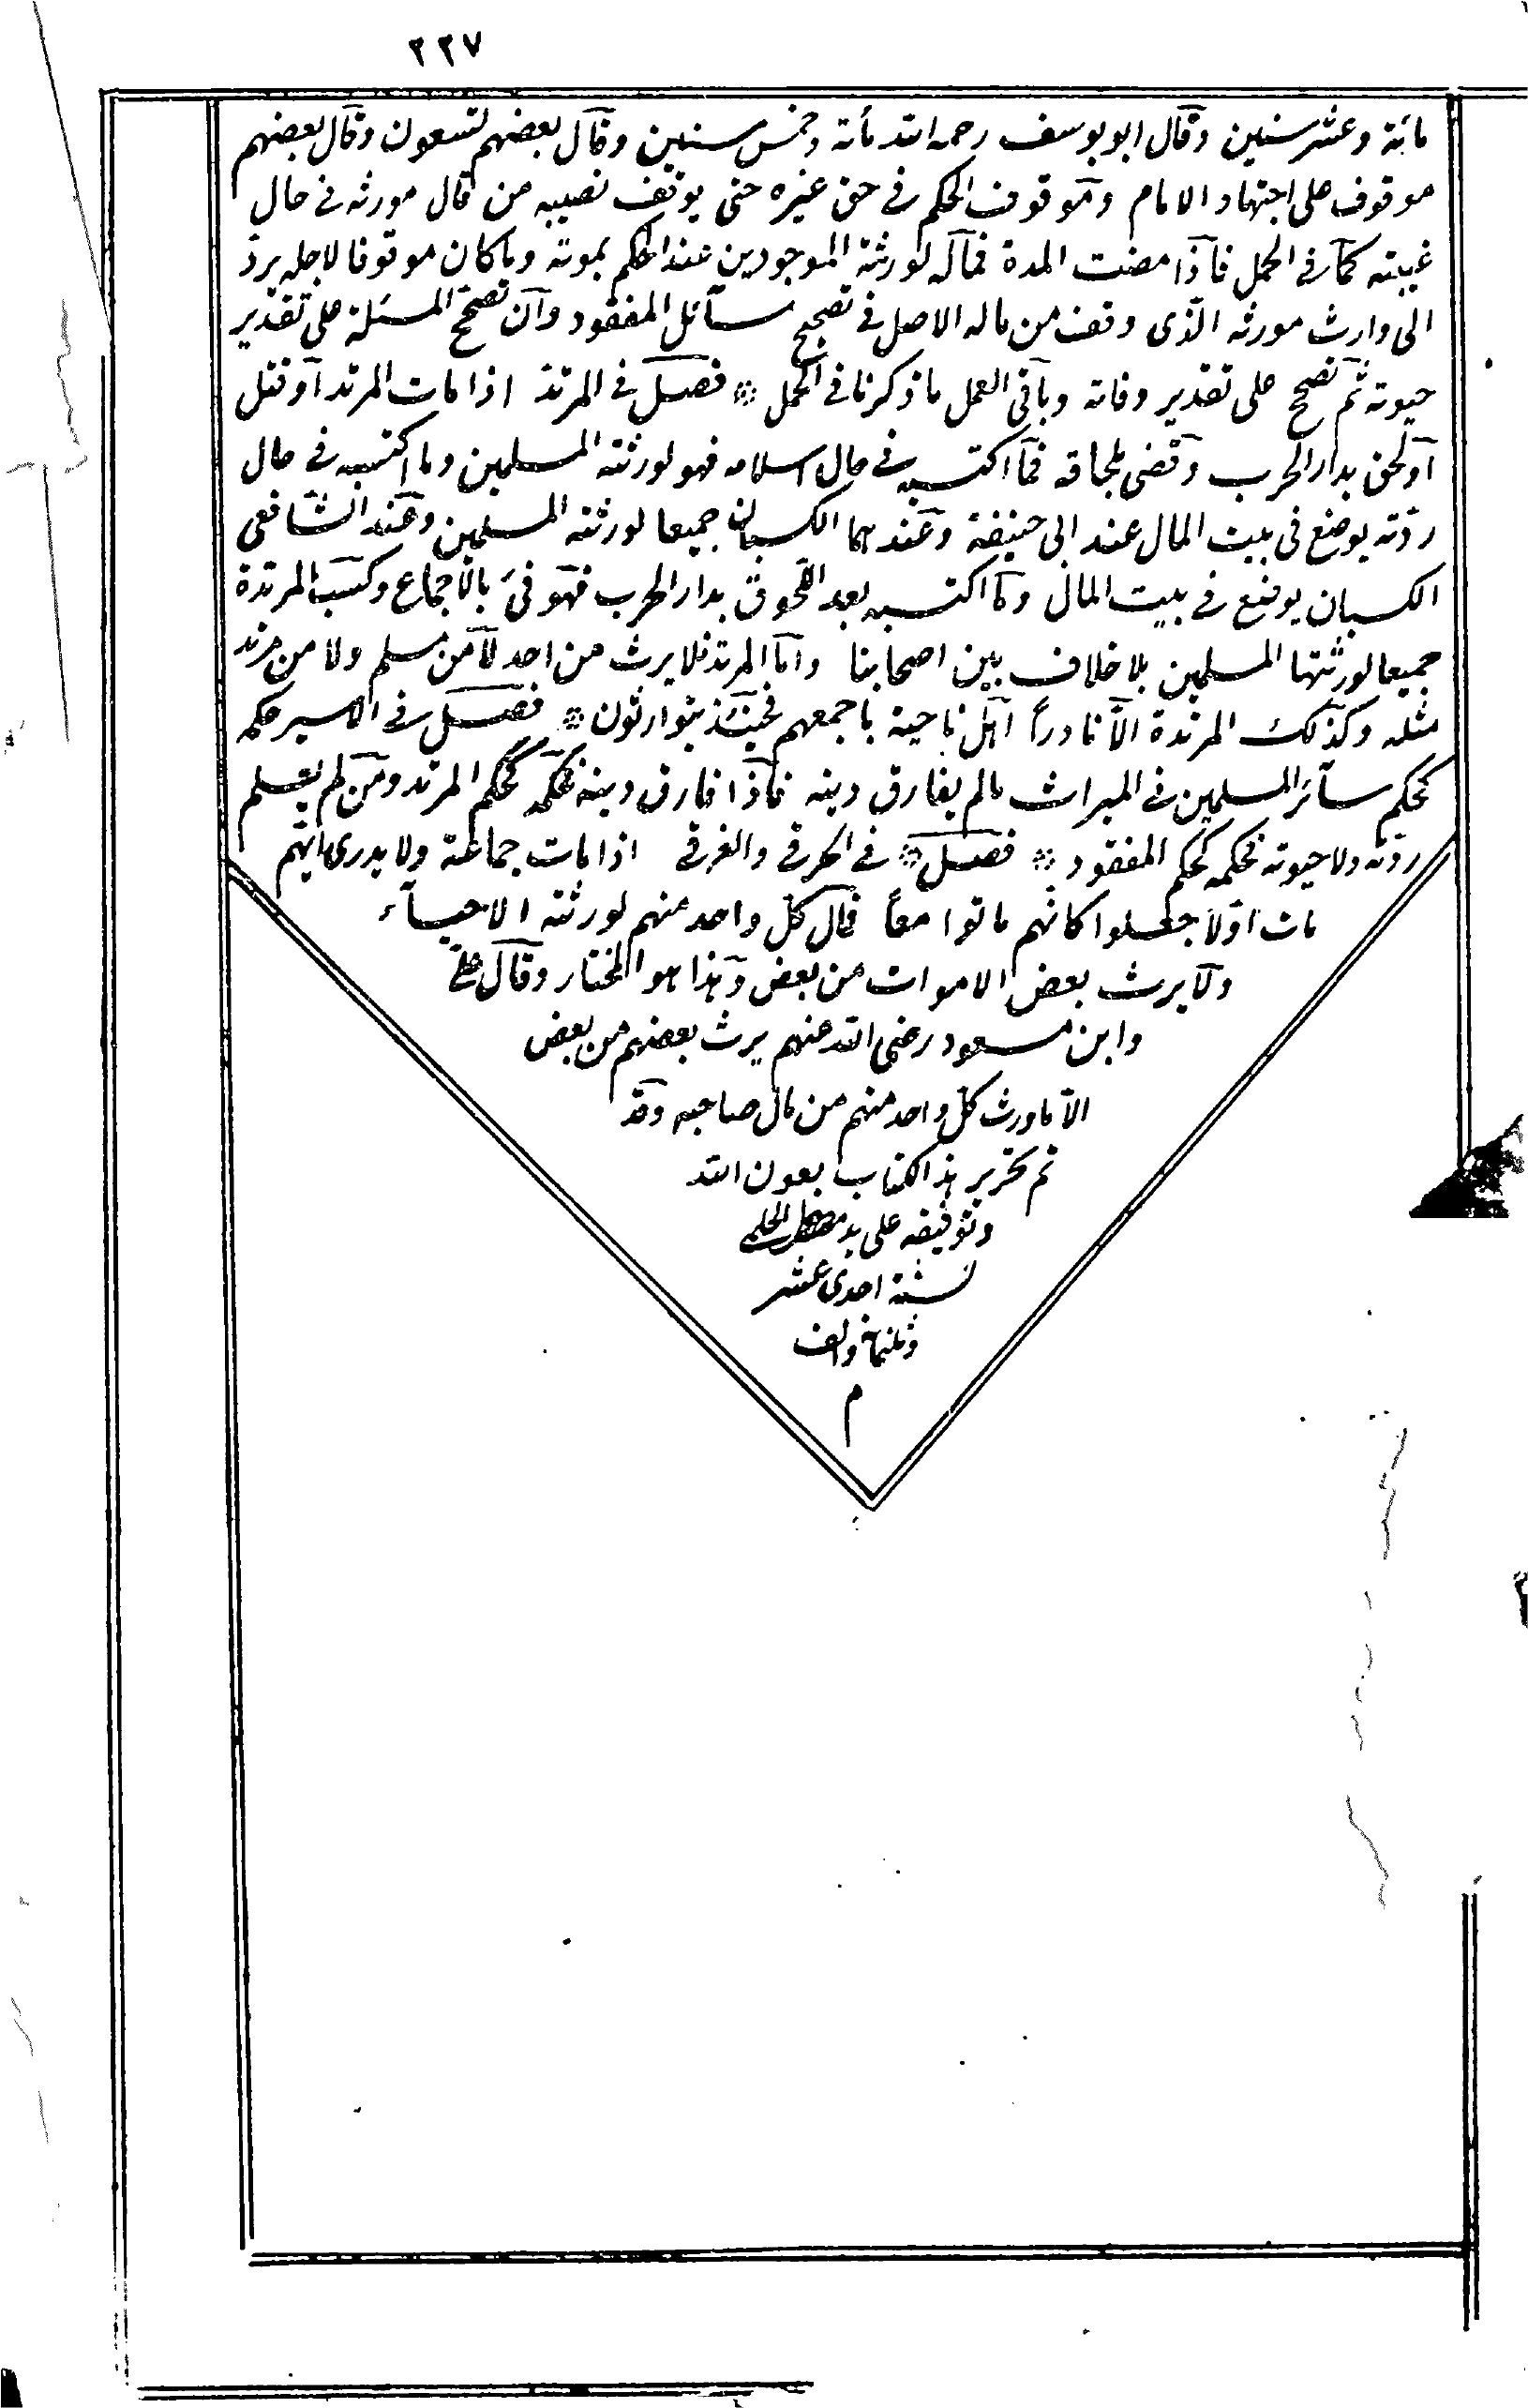 ٢٢٧
مائة وعشر سنين وقال ابو يوسف رحمه الله مأئة وخمس سنين وقال بعضهم تسعون وقال بعضهم
موقوف على اجتهاد الامام وموقوف الحكم فى حق غيره حتى يوقف نصيبه من مال مورثه فى حال
غيبته كما فى الحمل فاذا مضت المدة فماله لورثته الموجودين عند الحكم بموته وما كان موقوفا لاجله يرد
الى وارث مورثه الذى وقف من ماله الاصل فى تصحيح مسائل المفقود وان تصحح المسئلة على تقدير
حيوته ثم تصحح على تقدير وفاته وباقى العمل ما ذكرنا فى الحمل ۞ فصل فى المرتد اذا مات المرتد او قتل
او لحق بدار الحرب وقضى بلحاقه فما اكتسبه فى حال اسلامه فهو لورثته المسلمين وما اكتسبه فى حال
ردّته يوضع فى بيت المال عند ابى حنيفة وعندهما الكسبان جميعا لورثته المسلمين وعند الشافعى
الكسبان يوضع فى بيت المال وما اكتسبه بعد اللحوق بدار الحرب فهو فئ بالاجماع وكسب المرتدة
جميعا لورثتها المسلمين بلا خلاف بين اصحابنا واما المرتد فلا يرث من احد لا من مسلم ولا من مرتد
مثله وكذلك المرتدة الا نادراً اهل ناحية باجمعهم فحينئذ يتوارثون ۞ فصل فى الاسير حكمه
كحكم سائر المسلمين فى الميراث مالم يفارق دينه فاذا فارق دينه فحكمه كحكم المرتد ومن لم يعلم
ردته ولا حيوته فحكمه كحكم المفقود ۞ فصل ۞ فى الحرقى والغرقى اذا مات جماعة ولا يدرى ايهم
مات اولا جعلوا كانهم ماتوا معاً فمال كل واحد منهم لورثته الاحياء
ولا يرث بعض الاموات من بعض وهذا هو المختار وقال على
وابن مسعود رضى الله عنهم يرث بعضهم من بعض
الا ما ورث كل واحد منهم من مال صاحبه وقد
تم تحرير هذا الكتاب بعون الله
وتوفيقه على يد
لسنة احدى عشر
وثلثمائة والف
م